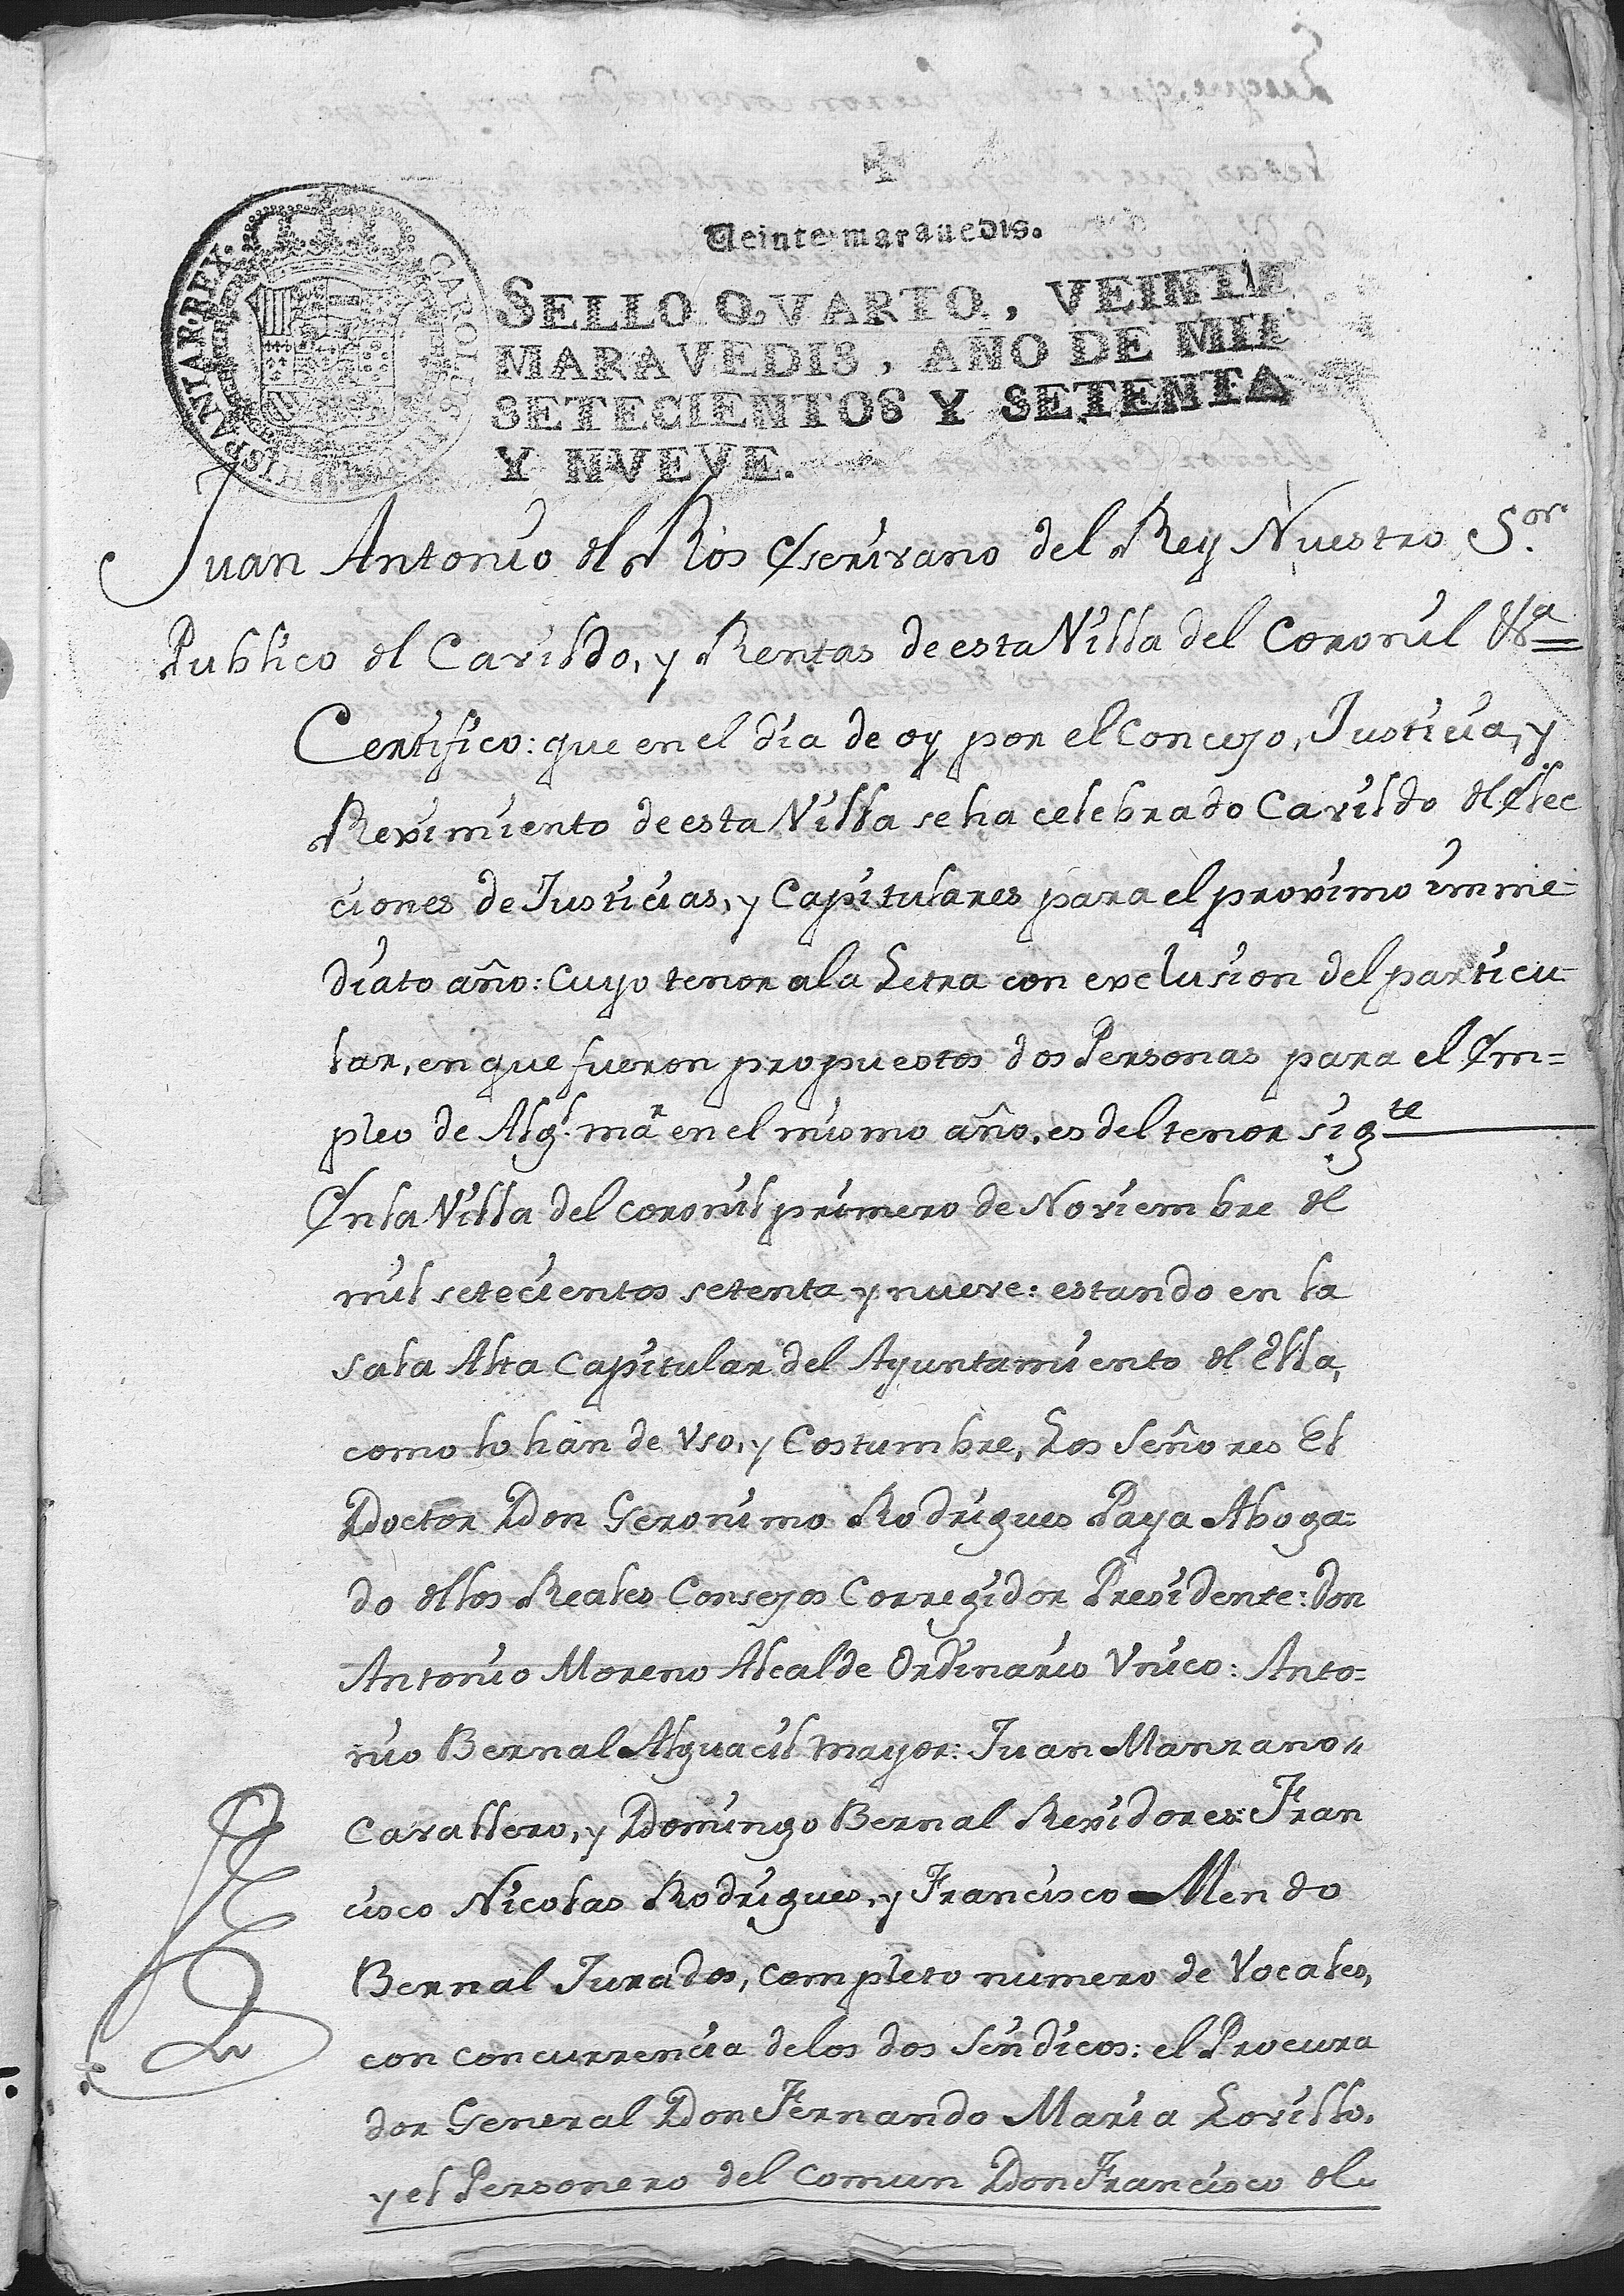 Veinte maravedis.
SELLO QVARTO, VEINTE
MARAVEDIS, AÑO DE MIL
SETECIENTOS Y SETENTA
Y NVEVE.
CAROLUS III HISPANIAR. REX.
Juan Antonio de Rios Escrivano del Rey Nuestro S.or
Publico de Cavildo, y Rentas de esta Villa del Coronil &a
Certifico: que en el dia de oy por el Concejo, Justicia, y
Reximiento de esta Villa se ha celebrado Cavildo de Elec
ciones de Justicias, y Capitulares para el proximo imme-
diato año: Cuyo tenor a la Letra con exclusion del particu-
lar, en que fueron propuestos dos Personas para el Em=
pleo de Alg.l mar en el mismo año, es del tenor sig.te
En la Villa del Coronil primero de Noviembre de
mil setecientos setenta y nueve: estando en la
sala Alta Capitular del Ayuntamiento de Ella,
como lo hán de Vso, y Costumbre, Los Señores El
Doctor Don Geronimo Rodrigues Paya Aboga-
do de los Reales Consejos Corregidor Presidente: Don
Antonio Moreno Alcalde Ordinario Vnico: Anto=
nio Bernal Alguacil mayor: Juan Manzano
Cavallero, y Domingo Bernal Rexidores: Fran
cisco Nicolas Rodrigues, y Francisco Mendo
Bernal Jurados, completo numero de Vocales,
con concurrencia de los dos Sindicos: el Procura
dor General Don Fernando Maria Lovillo,
y el Personero del Comun Don Francisco de